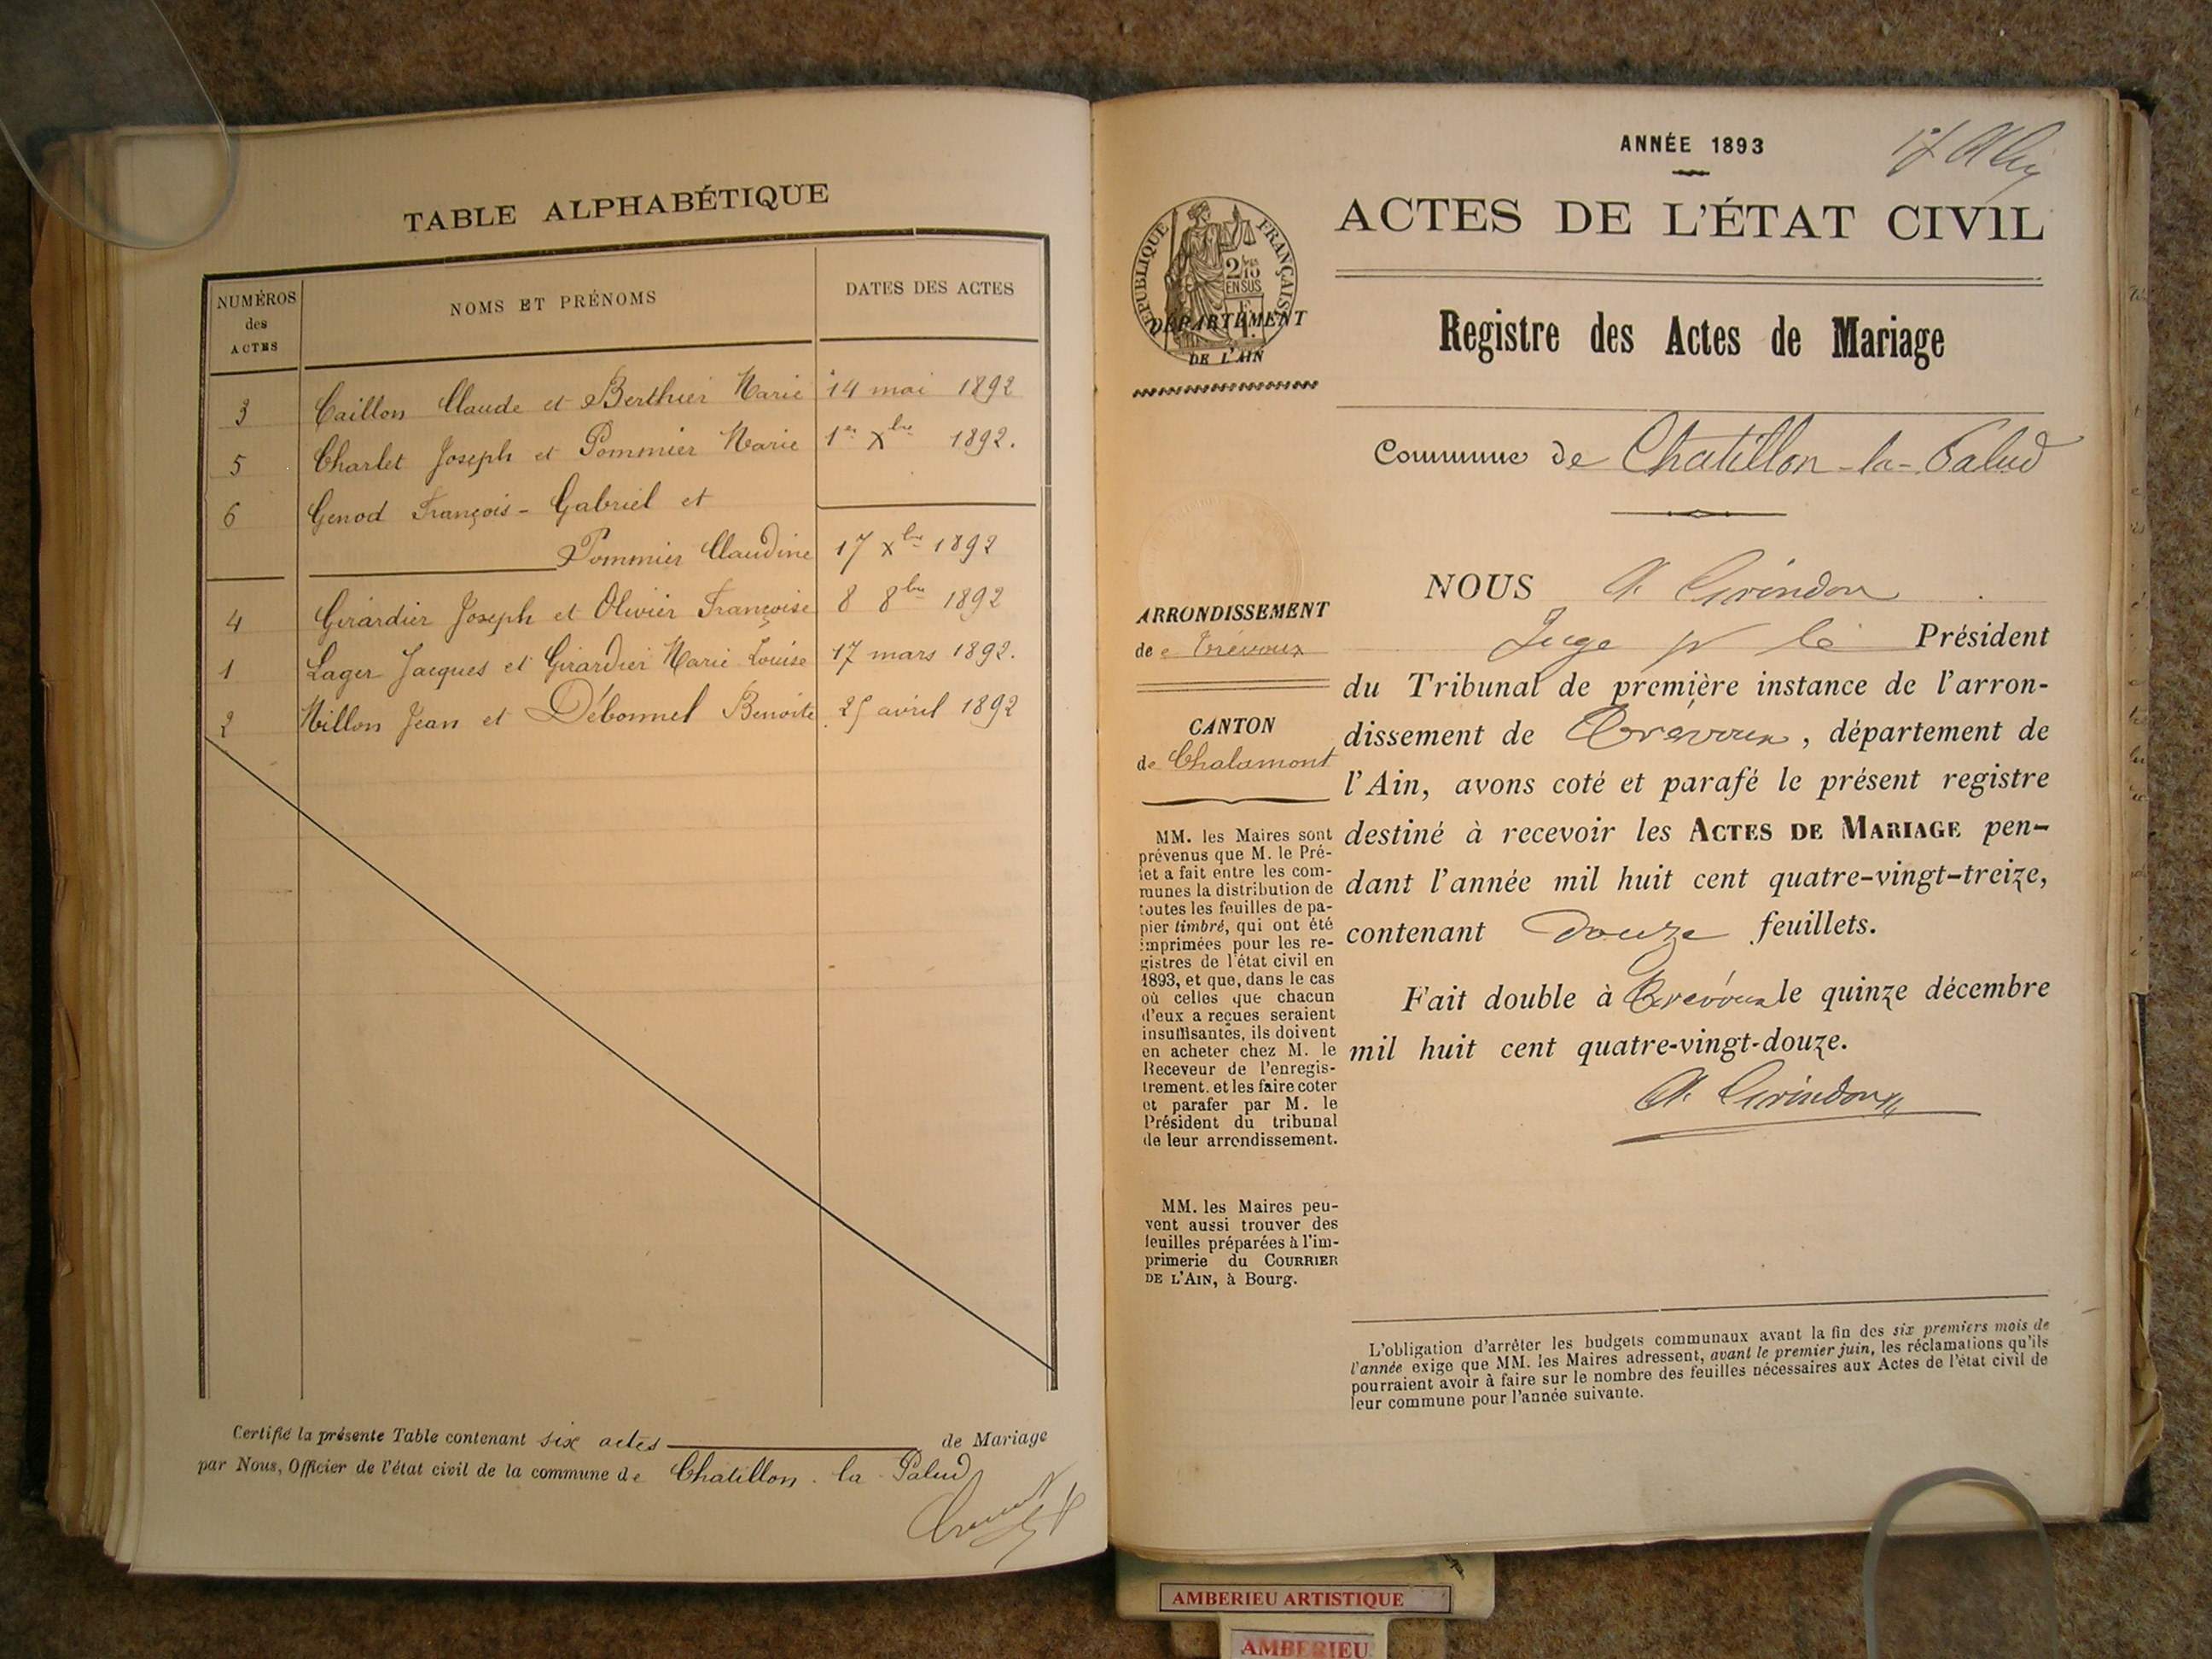 TABLE ALPHABÉTIQUE
NUMÉROS
des
ACTES
NOMS ET PRÉNOMS
DATES DES ACTES
3 Caillon Claude et Berthier Marie 14 mai 1892
5 Charlet Joseph et Pommier Marie 1er Xbre 1892.
6 Genod François-Gabriel et
Pommier Claudine 17 Xbre 1892
4 Girardier Joseph et Olivier Françoise 8 8bre 1892
1 Lager Jacques et Girardier Marie Louise 17 mars 1892.
2 Millon Jean et Débonnel Benoite 25 avril 1892
Certifié la présente Table contenant six actes de Mariage
par Nous, Officier de l'état civil de la commune de Chatillon-la-Palud
ANNÉE 1893
ACTES DE L'ÉTAT CIVIL
RÉPUBLIQUE FRANÇAISE
2/10
EN SUS
DÉPARTEMENT
DE L'AIN
Registre des Actes de Mariage
Commune de Chatillon-la-Palud
ARRONDISSEMENT
de Trévoux
CANTON
de Chalamont
MM. les Maires sont
prévenus que M. le Pré-
fet a fait entre les com-
munes la distribution de
toutes les feuilles de pa-
pier timbré, qui ont été
imprimées pour les re-
gistres de l'état civil en
1893, et que, dans le cas
où celles que chacun
d'eux a reçues seraient
insuffisantes, ils doivent
en acheter chez M. le
Receveur de l'enregis-
trement. et les faire coter
et parafer par M. le
Président du tribunal
de leur arrondissement.
MM. les Maires peu-
vent aussi trouver des
feuilles préparées à l'im-
primerie du COURRIER
DE L'AIN, à Bourg.
NOUS
Juge pr le Président
du Tribunal de première instance de l'arron-
dissement de Trévoux, département de
l'Ain, avons coté et parafé le présent registre
destiné à recevoir les ACTES DE MARIAGE pen-
dant l'année mil huit cent quatre-vingt-treize,
contenant douze feuillets.
Fait double à Trévoux le quinze décembre
mil huit cent quatre-vingt-douze.
L'obligation d'arrêter les budgets communaux avant la fin des six premiers mois de
l'année exige que MM. les Maires adressent, avant le premier juin, les réclamations qu'ils
pourraient avoir à faire sur le nombre des feuilles nécessaires aux Actes de l'état civil de
leur commune pour l'année suivante.
AMBERIEU ARTISTIQUE
AMBERIEU